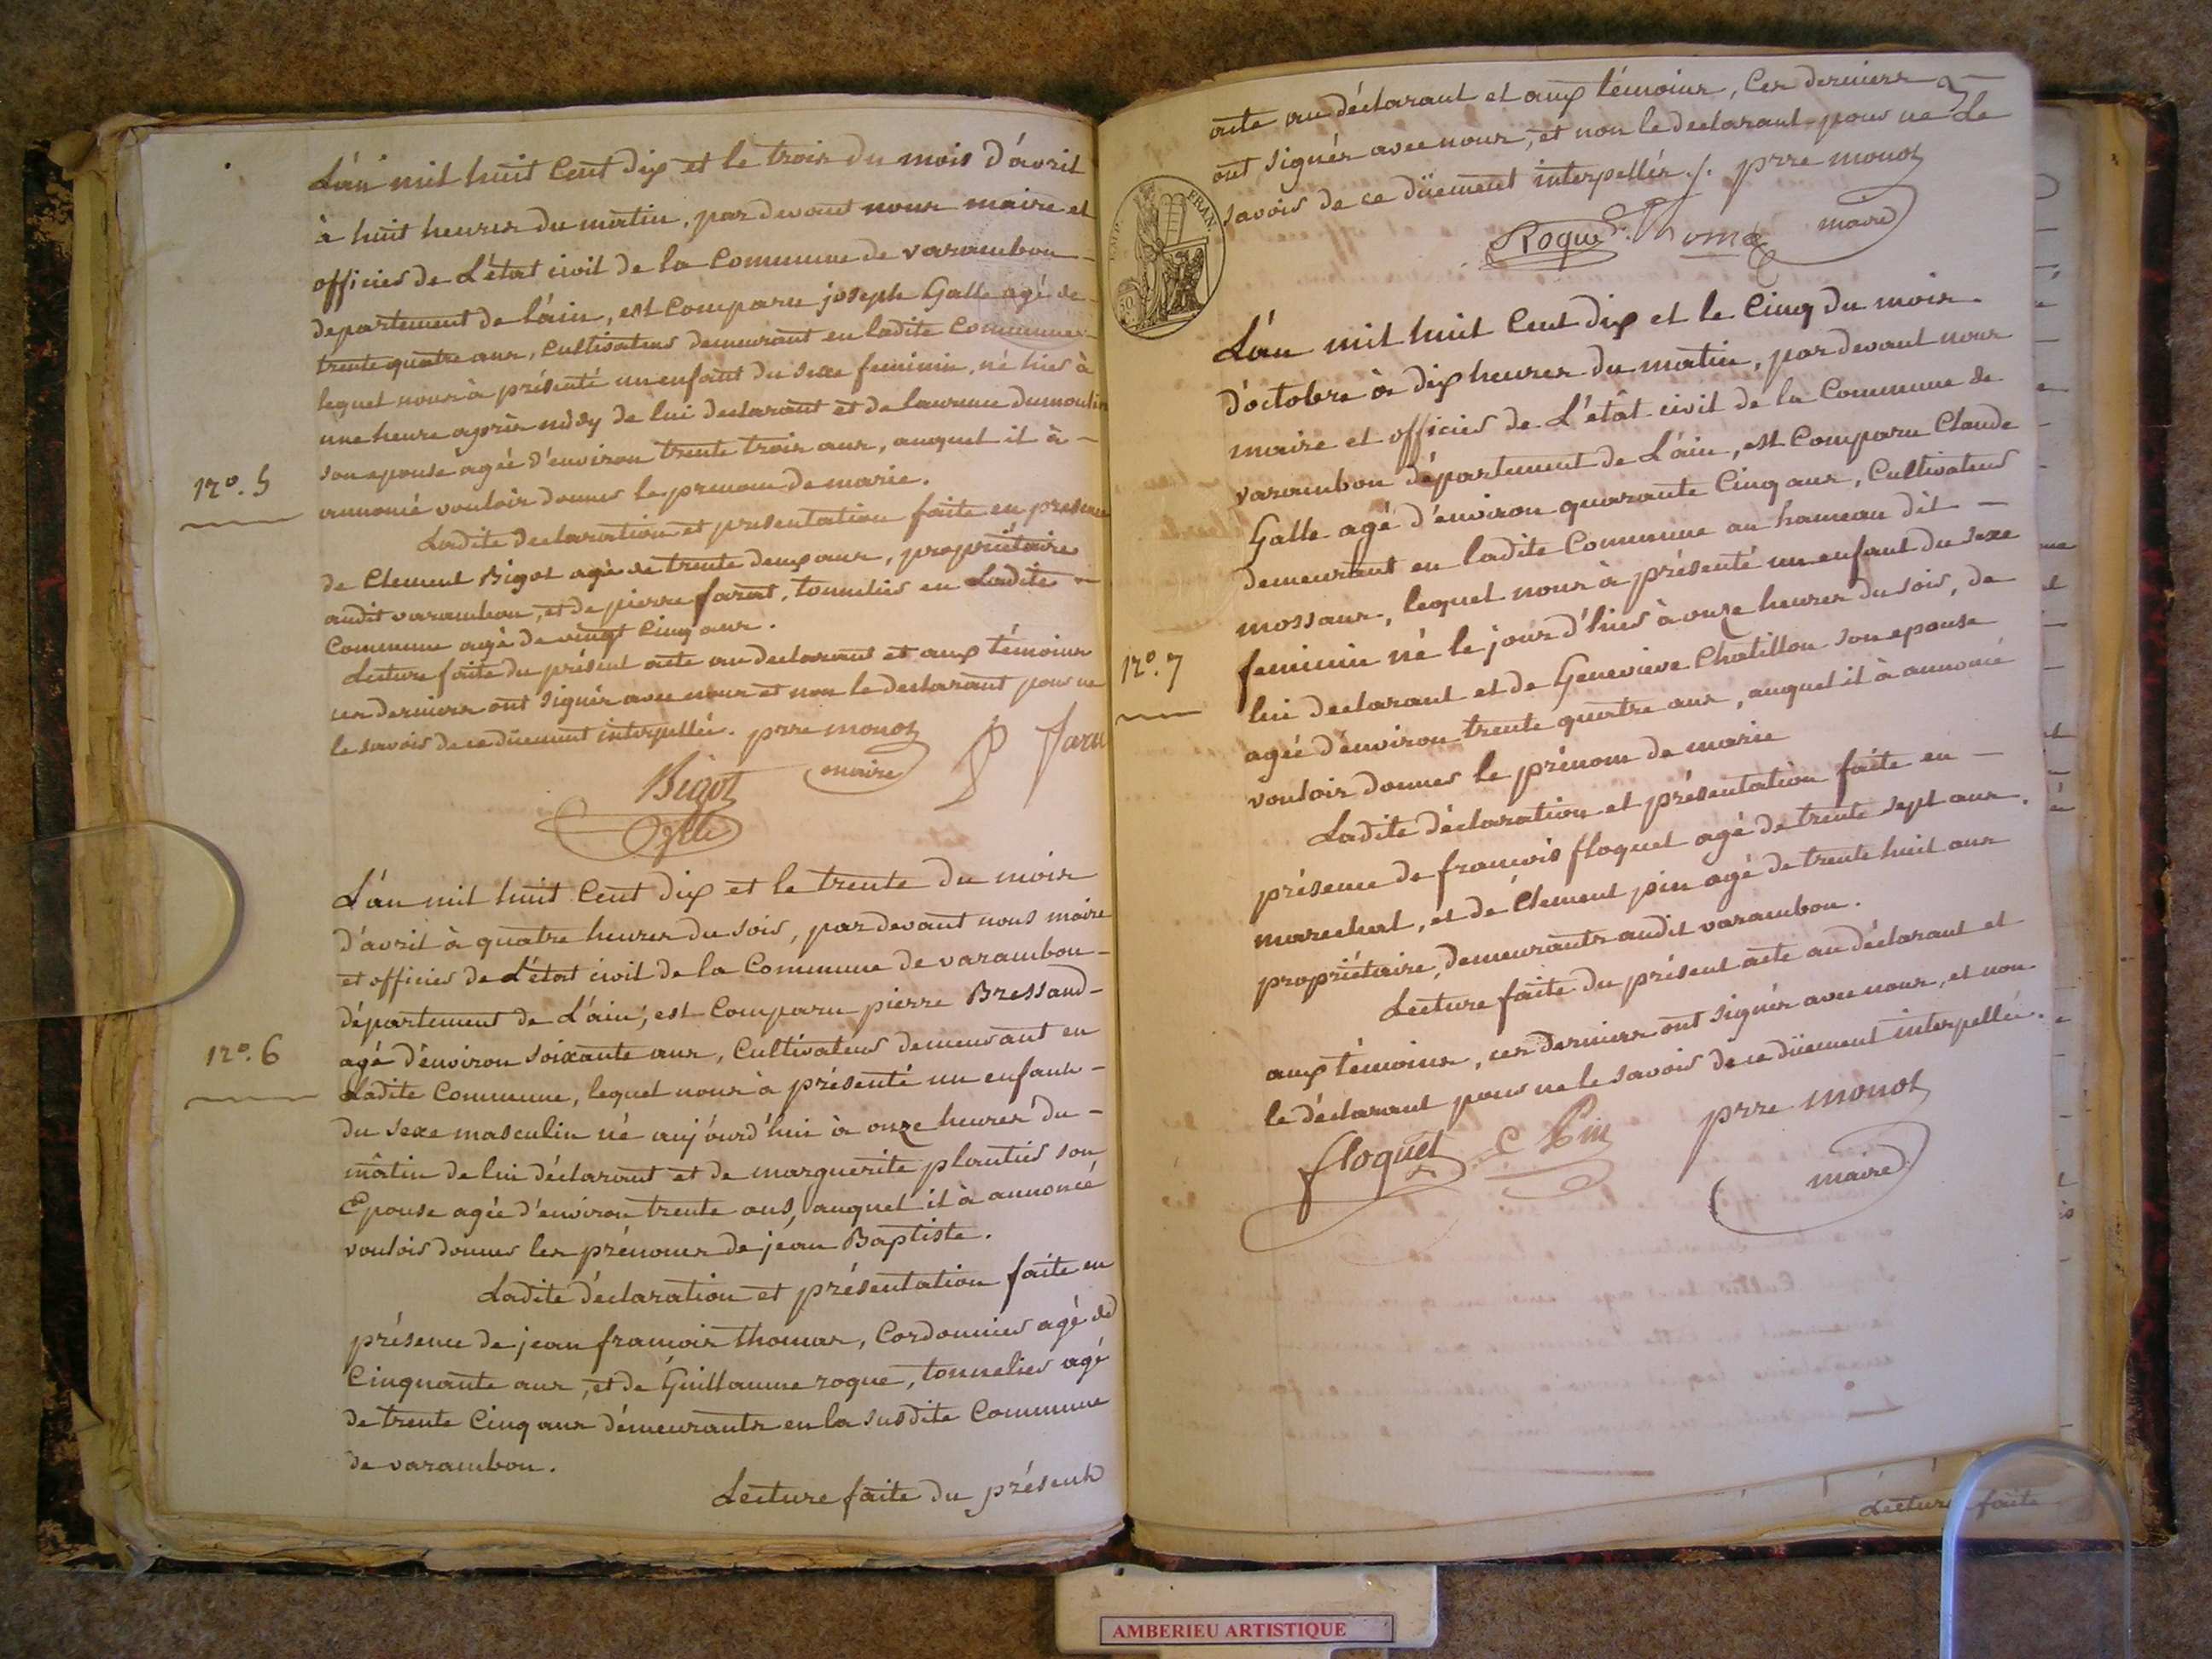 L'án mil huit Cent dix et le trois du mois d'ávril
à huit heures du matin, par devant nous maire et
officier de L'état civil de la Commune de varambon
departement de l'áin, est Comparu joseph Galle agé de
trente quatre ans, Cultivateur demeurant en ladite Commune
lequel nous à présenté un enfant du sexe feminin, né hier à
une heure après midy de lui declarant et de laurence dumoulin
son epouse agée d'environ trente trois ans, auquel il à
annoncé vouloir donner le prenom de marie.
No. 5
Ladite declaration et presentation faite en presence
de Clement Bigot agé de trente deux ans, propriétaire
audit varambon, et de pierre farat, tonnelier en Ladite
Commune agé de vingt Cinq ans.
Lecture faite du présent acte au declarant et aux témoins
ces derniers ont signés avec nous et non le declarant pour ne
le savoir de ce dûement interpellé. prre monot
maire
Bigot
L'án mil huit Cent dix et le trente du mois
d'avril à quatre heures du soir, par devant nous maire
et officier de L'état civil de la Commune de varambon
département de L'áin, est Comparu pierre Bressand
agé d'énviron soixante ans, Cultivateur demeurant en
No. 6
Ladite Commune, lequel nous à présenté un enfant
du sexe masculin né aujóurd'hui à onze heures du
mâtin de lui déclarant et de marguerite plantier son
Epouse agée d'environ trente ans, auquel il à annoncé
vouloir donner les prénoms de jean Baptiste.
Ladite déclaration et présentation faite en
présence de jean francois thomas, Cordonnier agé de
Cinquante ans, et de Guillaume roque, tonnelier agé
de trente Cinq ans démeurants en la susdite Commune
de varambon.
Lecture faite du présent
acte au déclarant et aux témoins, Ces derniers
ont signés avec nous, et non le declarant pour ne Le
savoir de ce dûement interpellés ./. prre monot
maire
Roque
EMP. FRAN.
L'án mil huit Cent dix et le Cinq du mois
d'óctobre à dix heures du matin, par devant nous
maire et officier de L'etât civil de la Commune de
varambon département de L'áin, est Comparu Claude
Galle agé d'environ quarante Cinq ans, Cultivateur
demeurant en ladite Commune au hameau dit
mossans, lequel nous à présenté un enfant du sexe
feminin né le jour d'hier à onze heures du soir, de
No. 7
lui declarant et de Genevieve Chatillon son epouse
agée d'énviron trente quatre ans, auquel il à annoncé
vouloir donner le prénom de marie
Ladite déclaration et présentation faite en
présence de francois floquet agé de trente sept ans.
marechal, et de Clement pin agé de trente huit ans
propriétaire, demeurants audit varambon.
Lecture faite du présent acte au déclarant et
aux témoins, ces derniers ont signés avec nous, et non
le déclarant pour ne le savoir de ce dûement interpellé.
floquet C Pin prre monot
maire
Lecture faite
AMBERIEU ARTISTIQUE